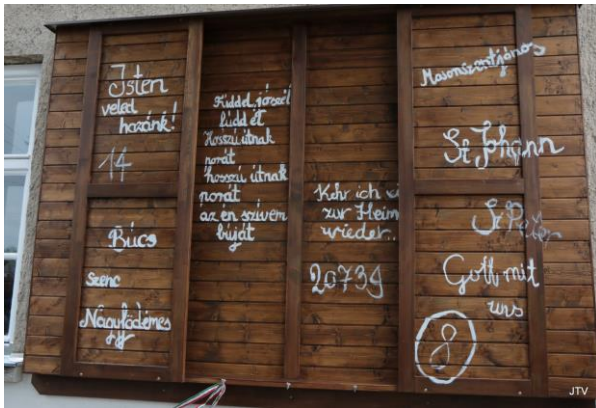 Isten
veled
hazánk!
14
Búcs
Szenc
Nagyfödémes
Küldd el
Hosszú útnak
porát
hosszú útnak
porát
az én szívem
búját
Kehr ich
zur Heim
wieder..
20739
Mosonszentjános
St Johann
St Peter
Gott mit
uns
8
JTV